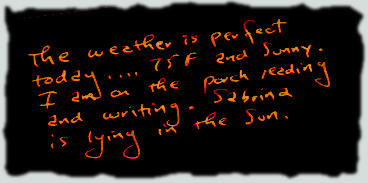 The weather is perfect
today.... 75F and Sunny.
I am on the porch reading
and writing. Sabrina
is lying in the Sun.